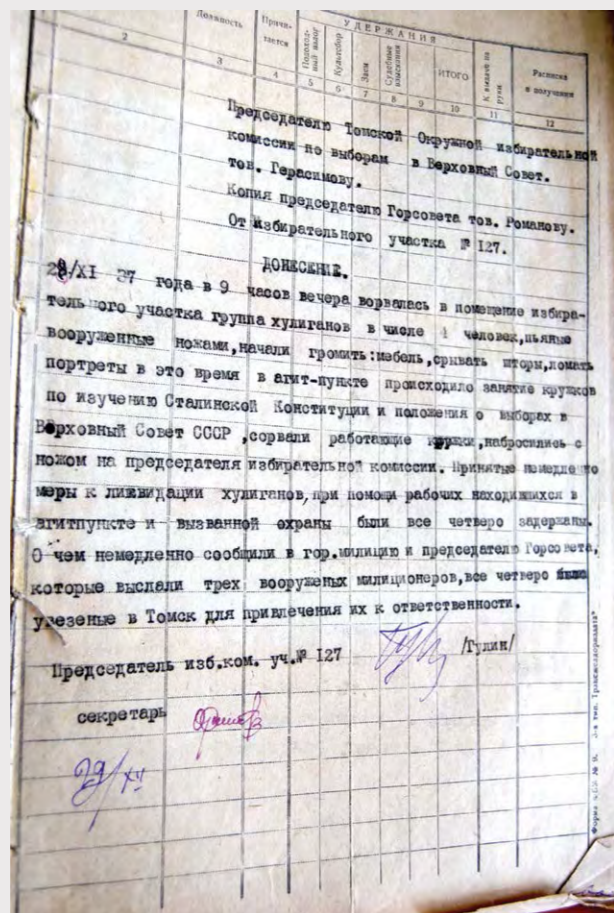 Должность
Причитается
УДЕРЖАНИЯ
Подоходный налог
Культсбор
Заем
Судебные взыскания
ИТОГО
К выдаче на руки
Расписка в получении
2 3 4 5 6 7 8 9 10 11 12
Председателю Томской Окружной избирательной
комиссии по выборам в Верховный Совет.
тов. Герасимову.
Копия председателю Горсовета тов. Романову.
От Избирательного участка № 127.
ДОНЕСЕНИЕ.
28/XI 37 года в 9 часов вечера ворвалась в помещение избира-
тельного участка группа хулиганов в числе 4 человек,пьяные
вооруженные ножами,начали громить:мебель,срывать шторы,ломать
портреты в это время в агит-пункте происходило занятие кружков
по изучению Сталинской Конституции и положения о выборах в
Верховный Совет СССР ,сорвали работающие кружки,набросились с
ножом на председателя избирательной комиссии. Принятые немедленно
меры к ликвидации хулиганов,при помощи рабочих находившихся в
агитпункте и вызванной охраны были все четверо задержаны.
О чем немедленно сообщили в гор.милицию и председателю Горсовета,
которые выслали трех вооруженых милиционеров,все четверо были
увезеные в Томск для привлечения их к ответственности.
Председатель изб.ком. уч.№ 127 /Гулин/
секретарь
29/XII